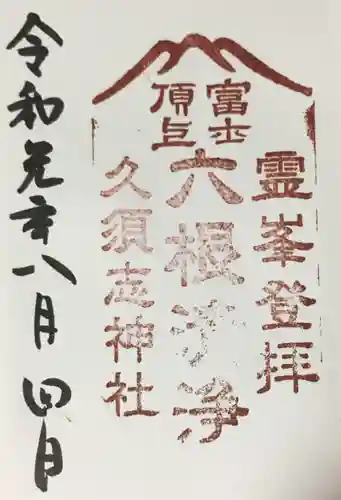 富士
頂上
霊峯登拝
六根清浄
久須志神社
令和元年八月四日